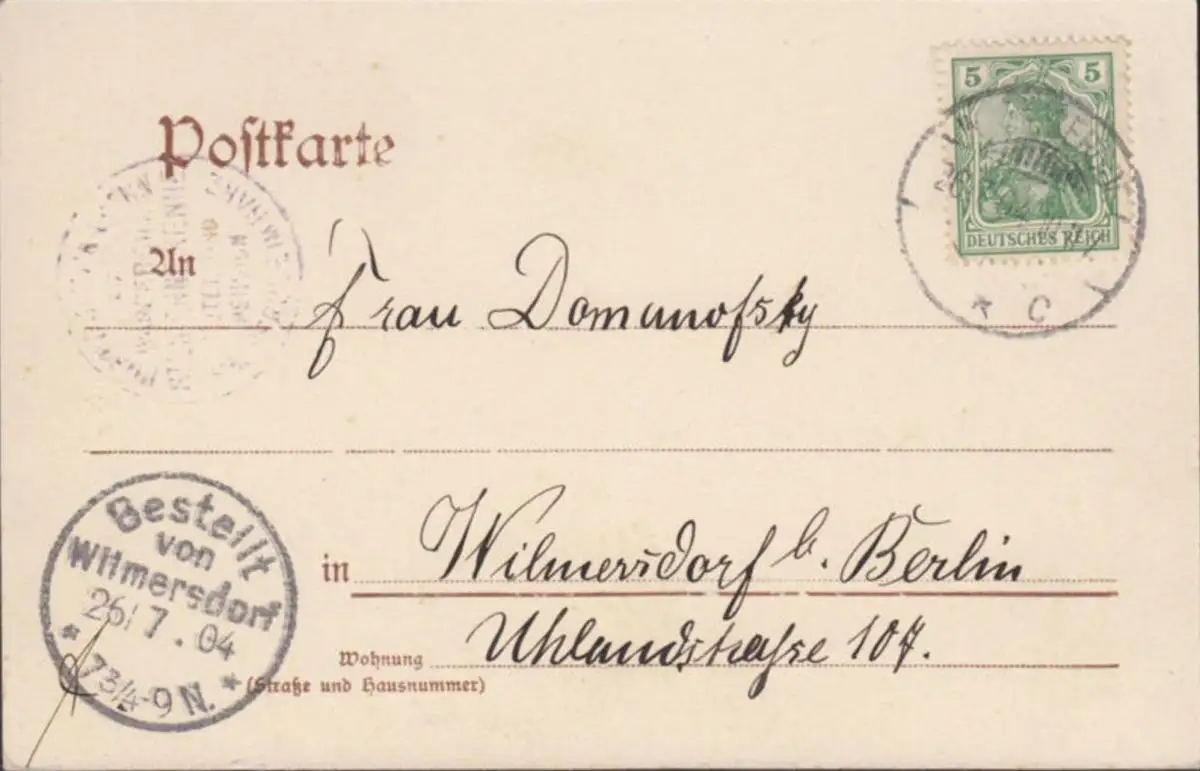 5 5
DEUTSCHES REICH
* C
Postkarte
An
Frau Domanofsky
in Wilmersdorf b. Berlin
Uhlandstraße 107.
Wohnung
(Straße und Hausnummer)
Bestellt
von
Wilmersdorf
26/7.04
* 7¾-9 N. *